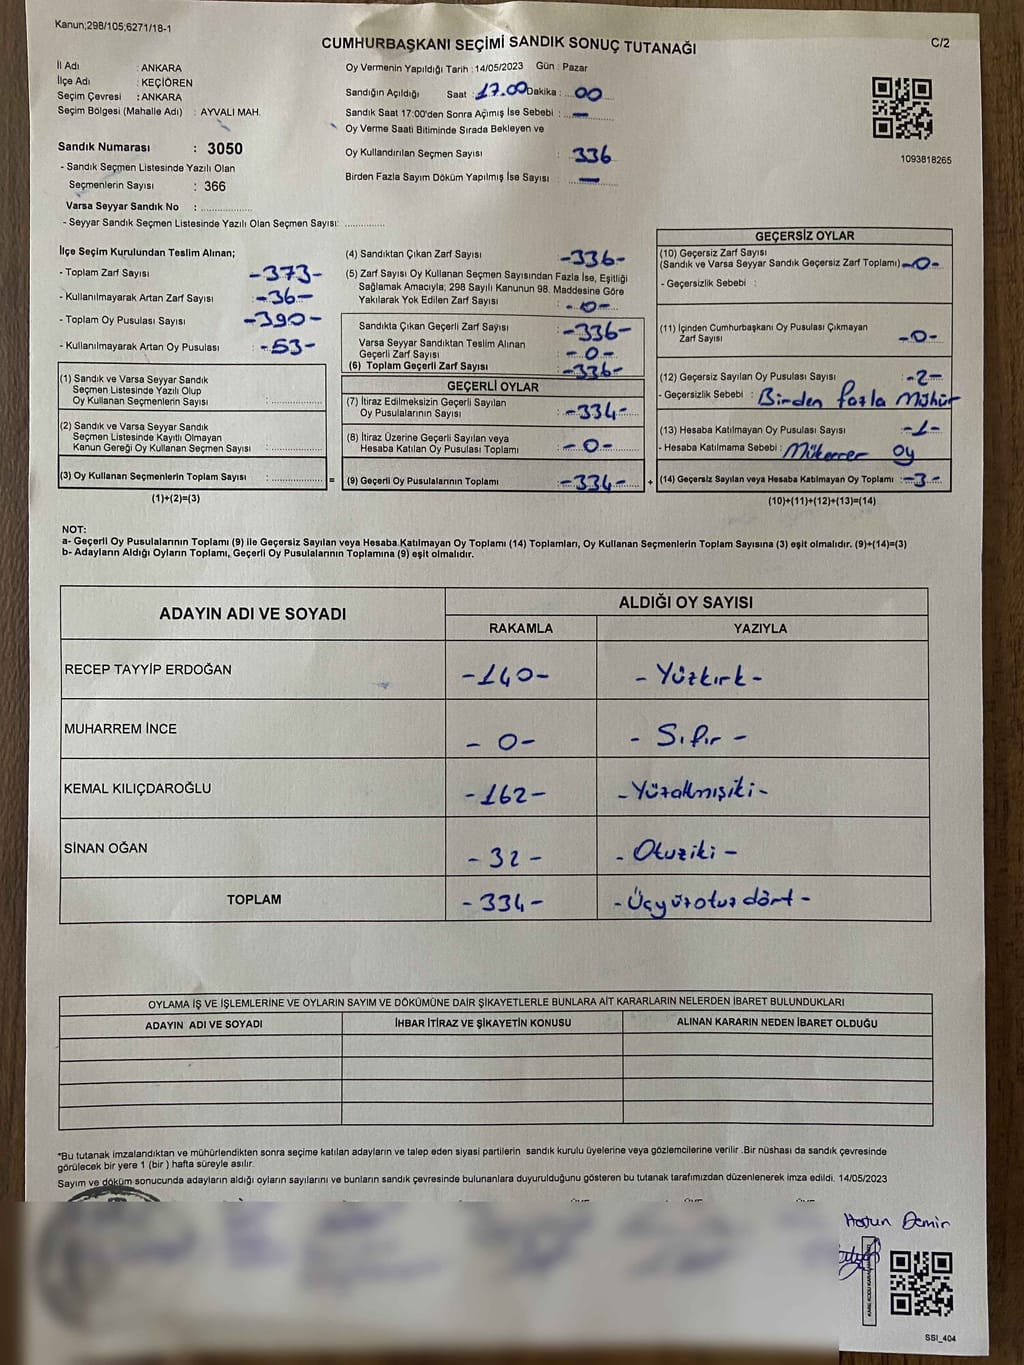 Kanun;298/105;6271/18-1
CUMHURBAŞKANI SEÇİMİ SANDIK SONUÇ TUTANAĞI
C/2
İl Adı : ANKARA
İlçe Adı : KEÇİÖREN
Seçim Çevresi : ANKARA
Seçim Bölgesi (Mahalle Adı) : AYVALI MAH.
Sandık Numarası : 3050
- Sandık Seçmen Listesinde Yazılı Olan
Seçmenlerin Sayısı : 366
Varsa Seyyar Sandık No : ................
- Seyyar Sandık Seçmen Listesinde Yazılı Olan Seçmen Sayısı: ............
Oy Vermenin Yapıldığı Tarih : 14/05/2023 Gün : Pazar
Sandığın Açıldığı Saat : 17.00 Dakika : 00
Sandık Saat 17:00'den Sonra Açımış İse Sebebi : —
Oy Verme Saati Bitiminde Sırada Bekleyen ve
Oy Kullandırılan Seçmen Sayısı : 336
Birden Fazla Sayım Döküm Yapılmış İse Sayısı : —
1093818265
İlçe Seçim Kurulundan Teslim Alınan;
- Toplam Zarf Sayısı : -373-
- Kullanılmayarak Artan Zarf Sayısı : -36-
- Toplam Oy Pusulası Sayısı : -390-
- Kullanılmayarak Artan Oy Pusulası : -53-
(1) Sandık ve Varsa Seyyar Sandık
Seçmen Listesinde Yazılı Olup
Oy Kullanan Seçmenlerin Sayısı : ................
(2) Sandık ve Varsa Seyyar Sandık
Seçmen Listesinde Kayıtlı Olmayan
Kanun Gereği Oy Kullanan Seçmen Sayısı : ................
(3) Oy Kullanan Seçmenlerin Toplam Sayısı : ................
(1)+(2)=(3)
=
(4) Sandıktan Çıkan Zarf Sayısı : -336-
(5) Zarf Sayısı Oy Kullanan Seçmen Sayısından Fazla İse, Eşitliği
Sağlamak Amacıyla; 298 Sayılı Kanunun 98. Maddesine Göre
Yakılarak Yok Edilen Zarf Sayısı : -0-
Sandıkta Çıkan Geçerli Zarf Sayısı : -336-
Varsa Seyyar Sandıktan Teslim Alınan
Geçerli Zarf Sayısı : -0-
(6) Toplam Geçerli Zarf Sayısı : -336-
GEÇERLİ OYLAR
(7) İtiraz Edilmeksizin Geçerli Sayılan
Oy Pusulalarının Sayısı : -334-
(8) İtiraz Üzerine Geçerli Sayılan veya
Hesaba Katılan Oy Pusulası Toplamı : -0-
(9) Geçerli Oy Pusulalarının Toplamı : -334-
+
GEÇERSİZ OYLAR
(10) Geçersiz Zarf Sayısı
(Sandık ve Varsa Seyyar Sandık Geçersiz Zarf Toplamı) -0-
- Geçersizlik Sebebi :
(11) İçinden Cumhurbaşkanı Oy Pusulası Çıkmayan
Zarf Sayısı -0-
(12) Geçersiz Sayılan Oy Pusulası Sayısı : -2-
- Geçersizlik Sebebi : Birden fazla Mühür
(13) Hesaba Katılmayan Oy Pusulası Sayısı : -1-
- Hesaba Katılmama Sebebi : Mükerrer oy
(14) Geçersiz Sayılan veya Hesaba Katılmayan Oy Toplamı : -3-
(10)+(11)+(12)+(13)=(14)
NOT:
a- Geçerli Oy Pusulalarının Toplamı (9) ile Geçersiz Sayılan veya Hesaba Katılmayan Oy Toplamı (14) Toplamları, Oy Kullanan Seçmenlerin Toplam Sayısına (3) eşit olmalıdır. (9)+(14)=(3)
b- Adayların Aldığı Oyların Toplamı, Geçerli Oy Pusulalarının Toplamına (9) eşit olmalıdır.
ADAYIN ADI VE SOYADI
ALDIĞI OY SAYISI
RAKAMLA YAZIYLA
RECEP TAYYİP ERDOĞAN -140- -Yüzkırk-
MUHARREM İNCE -0- -Sıfır-
KEMAL KILIÇDAROĞLU -162- -Yüzaltmışiki-
SİNAN OĞAN -32- -Otuziki-
TOPLAM -334- -Üçyüzotuzdört-
OYLAMA İŞ VE İŞLEMLERİNE VE OYLARIN SAYIM VE DÖKÜMÜNE DAİR ŞİKAYETLERLE BUNLARA AİT KARARLARIN NELERDEN İBARET BULUNDUKLARI
ADAYIN ADI VE SOYADI İHBAR İTİRAZ VE ŞİKAYETİN KONUSU ALINAN KARARIN NEDEN İBARET OLDUĞU
*Bu tutanak imzalandıktan ve mühürlendikten sonra seçime katılan adayların ve talep eden siyasi partilerin sandık kurulu üyelerine veya gözlemcilerine verilir .Bir nüshası da sandık çevresinde
görülecek bir yere 1 (bir ) hafta süreyle asılır.
Sayım ve döküm sonucunda adayların aldığı oyların sayılarını ve bunların sandık çevresinde bulunanlara duyurulduğunu gösteren bu tutanak tarafımızdan düzenlenerek imza edildi. 14/05/2023
Demir
SSI_404